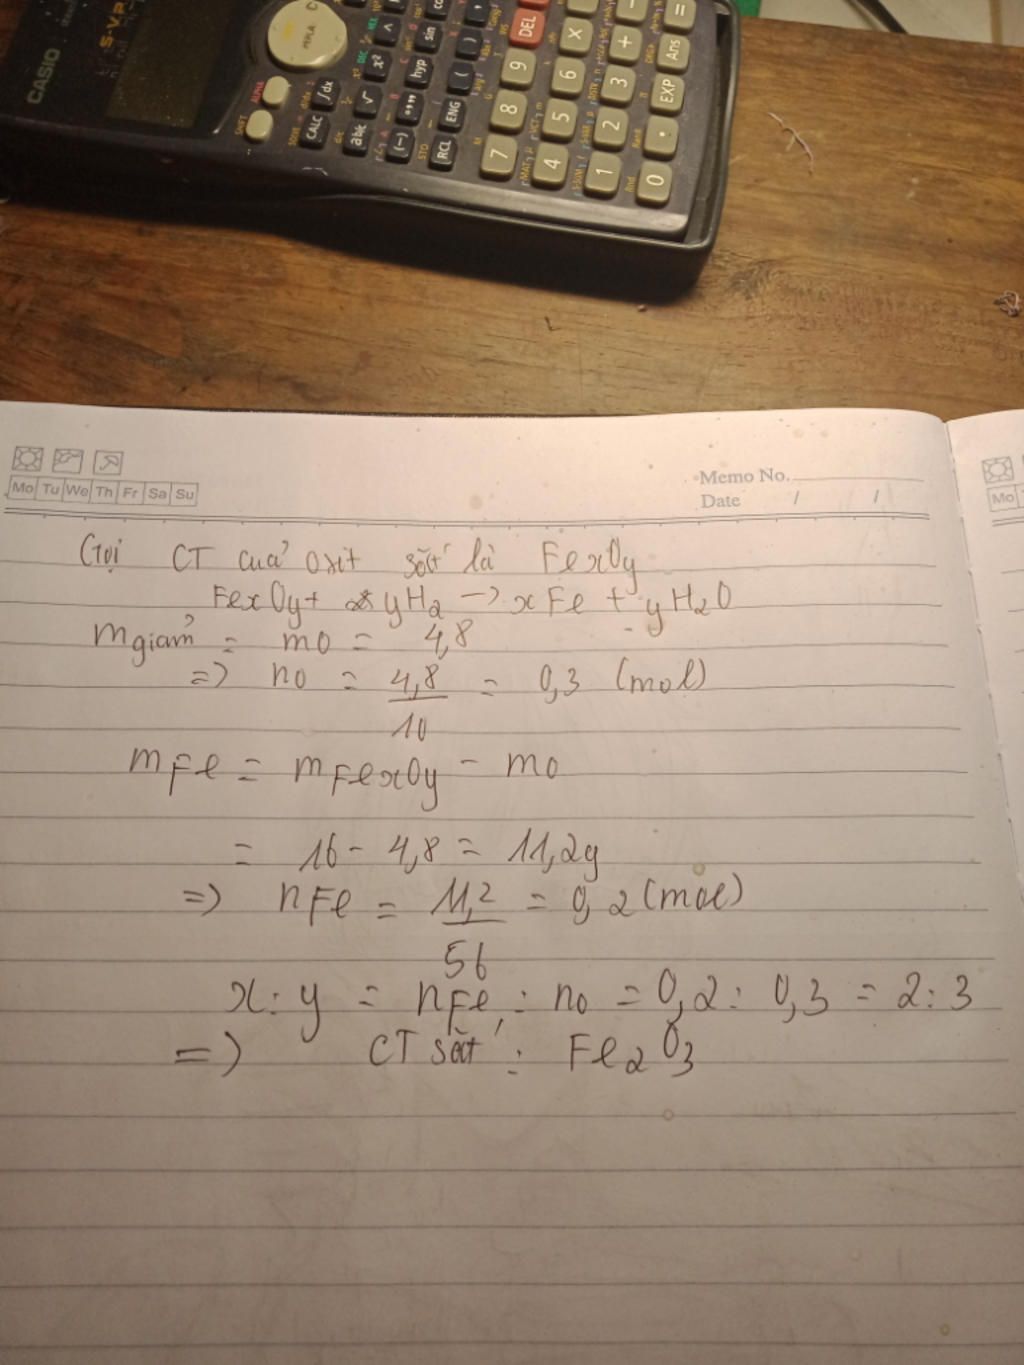 CASIO
S-V.P.
SHIFT
ALPHA
CALC
∫dx
ab/c
√
x²
^
(-)
°'"
hyp
sin
RCL
ENG
(
)
,
STO
7
8
9
DEL
4
5
6
X
1
2
3
+
-
0
.
EXP
Ans
=
Rnd
Ran#
Mo Tu We Th Fr Sa Su
Memo No.
Date / /
Mo
Gọi CT của oxit sắt là FexOy
FexOy + yH2 -> xFe + yH2O
mgiảm = mO = 4,8
=> nO = 4,8/10 = 0,3 (mol)
mFe = mFexOy - mO
= 16 - 4,8 = 11,2g
=> nFe = 11,2/56 = 0,2 (mol)
x : y = nFe : nO = 0,2 : 0,3 = 2 : 3
=> CT sắt : Fe2O3